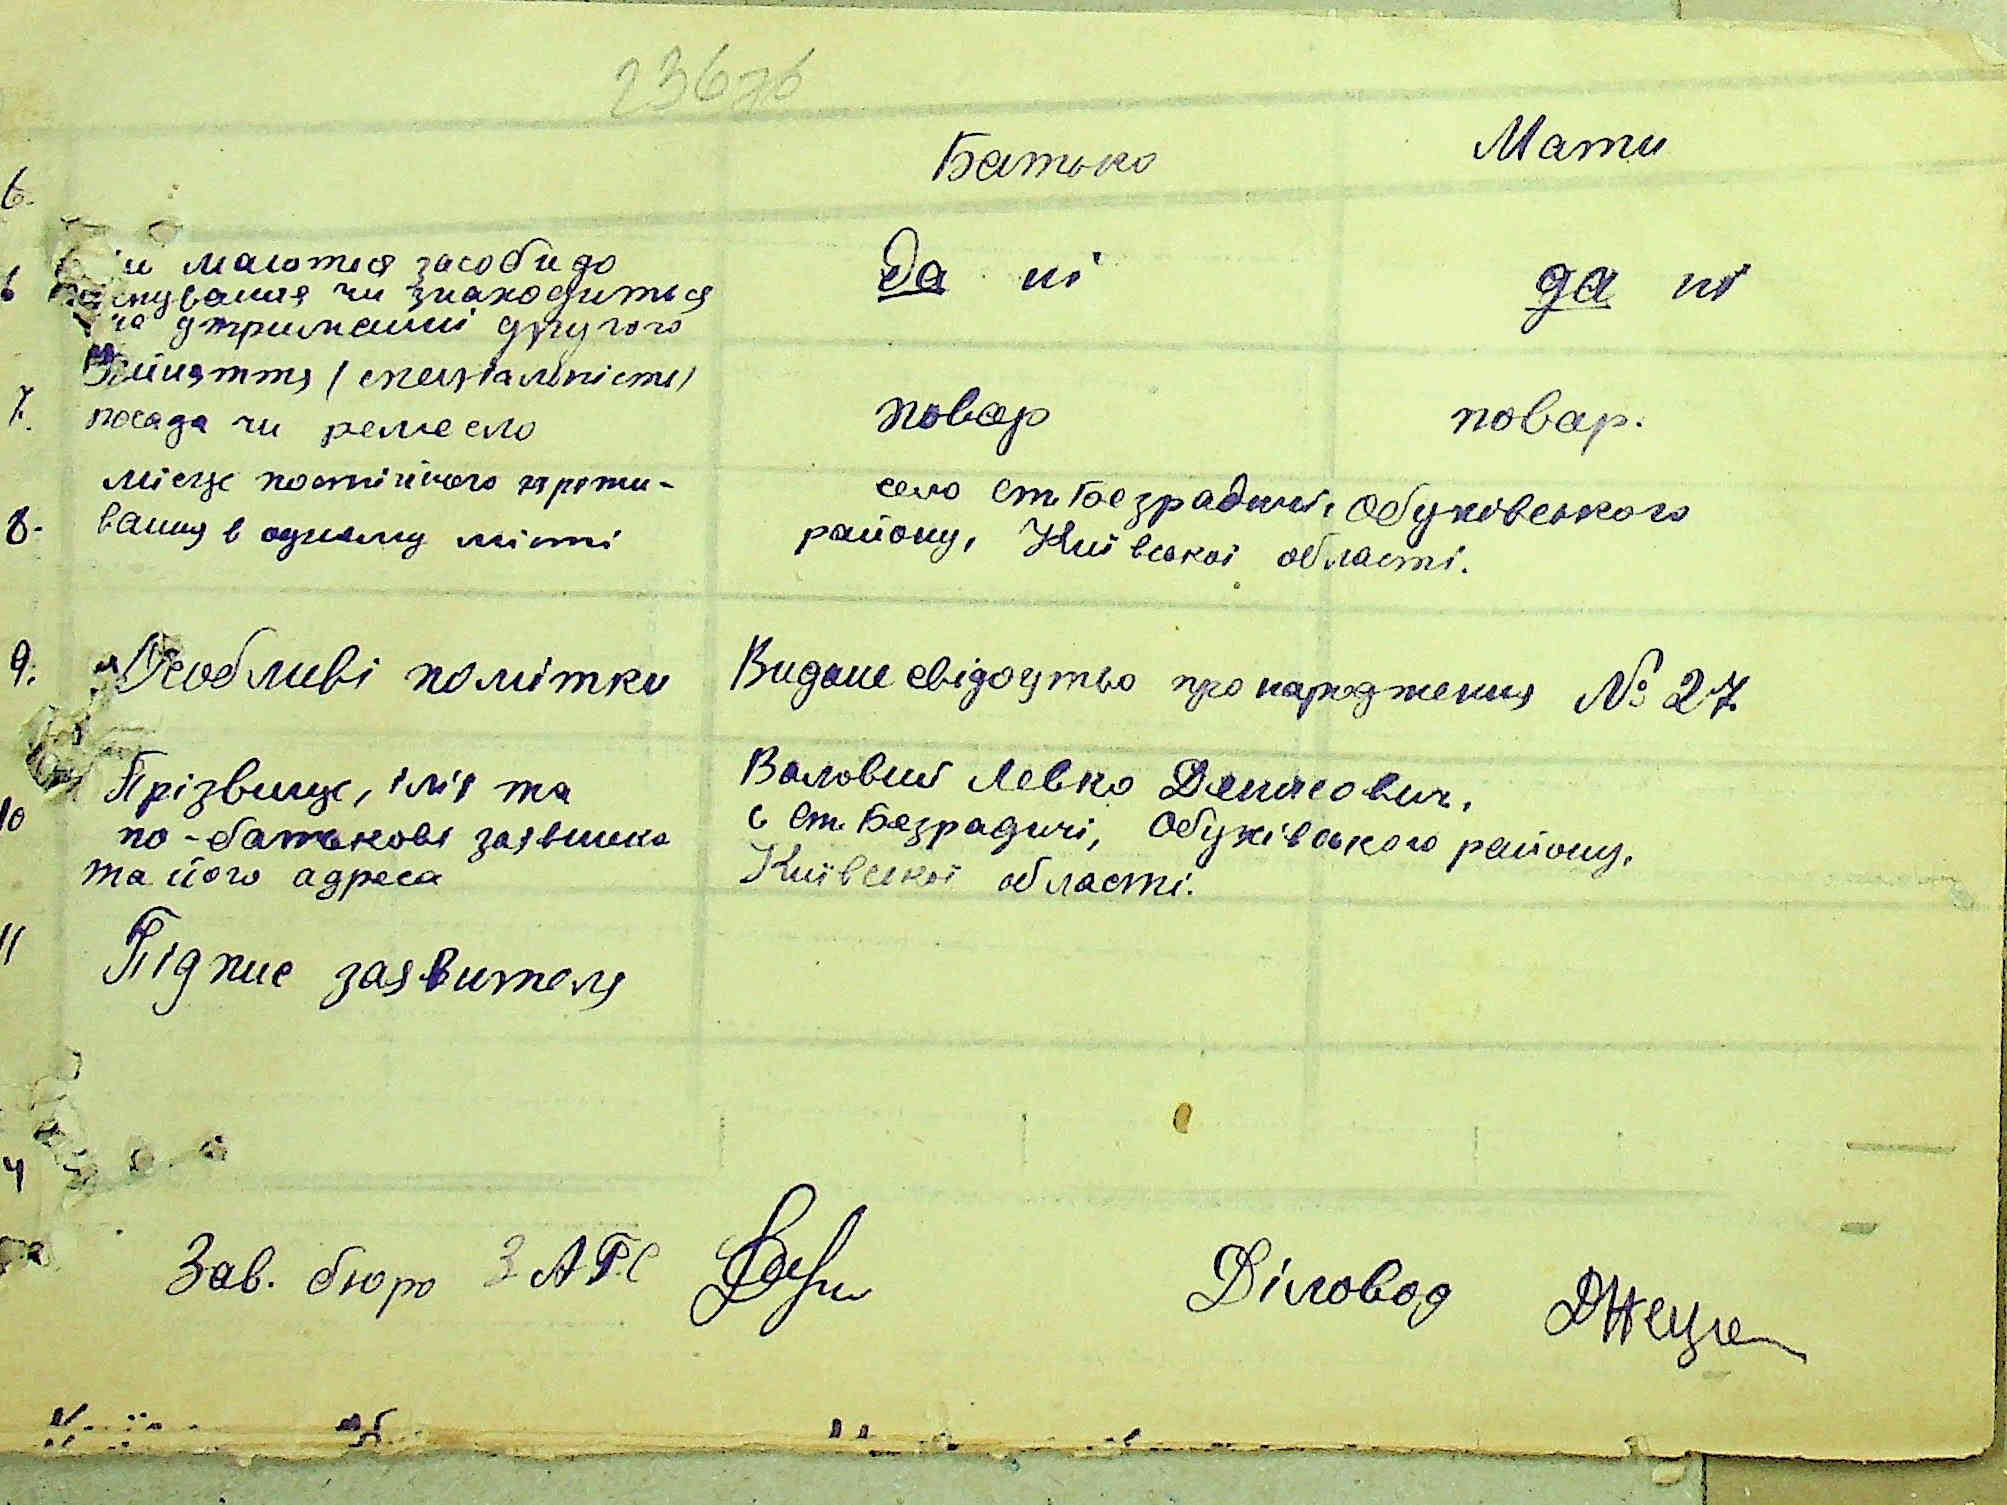 236зв
Батько Мати
6.
маються засоби до
6 існування чи знаходиться да ні да ні
на утриманні другого
Зайняття (спеціальність)
7. посада чи ремесло повар повар.
місце постійного
8. вання в одному місті
село ст. Безрадичі, Обухівського
району, Київської області.
9. Особливі помітки Видане свідоцтво про народження № 27.
Прізвище, імя та Валовий Левко Денисович,
10 по-батькові заявника с Ст. Безрадичі, Обухівського району,
та його адреса Київської області.
11 Підпис заявителя
Зав. бюро ЗАГС Діловод